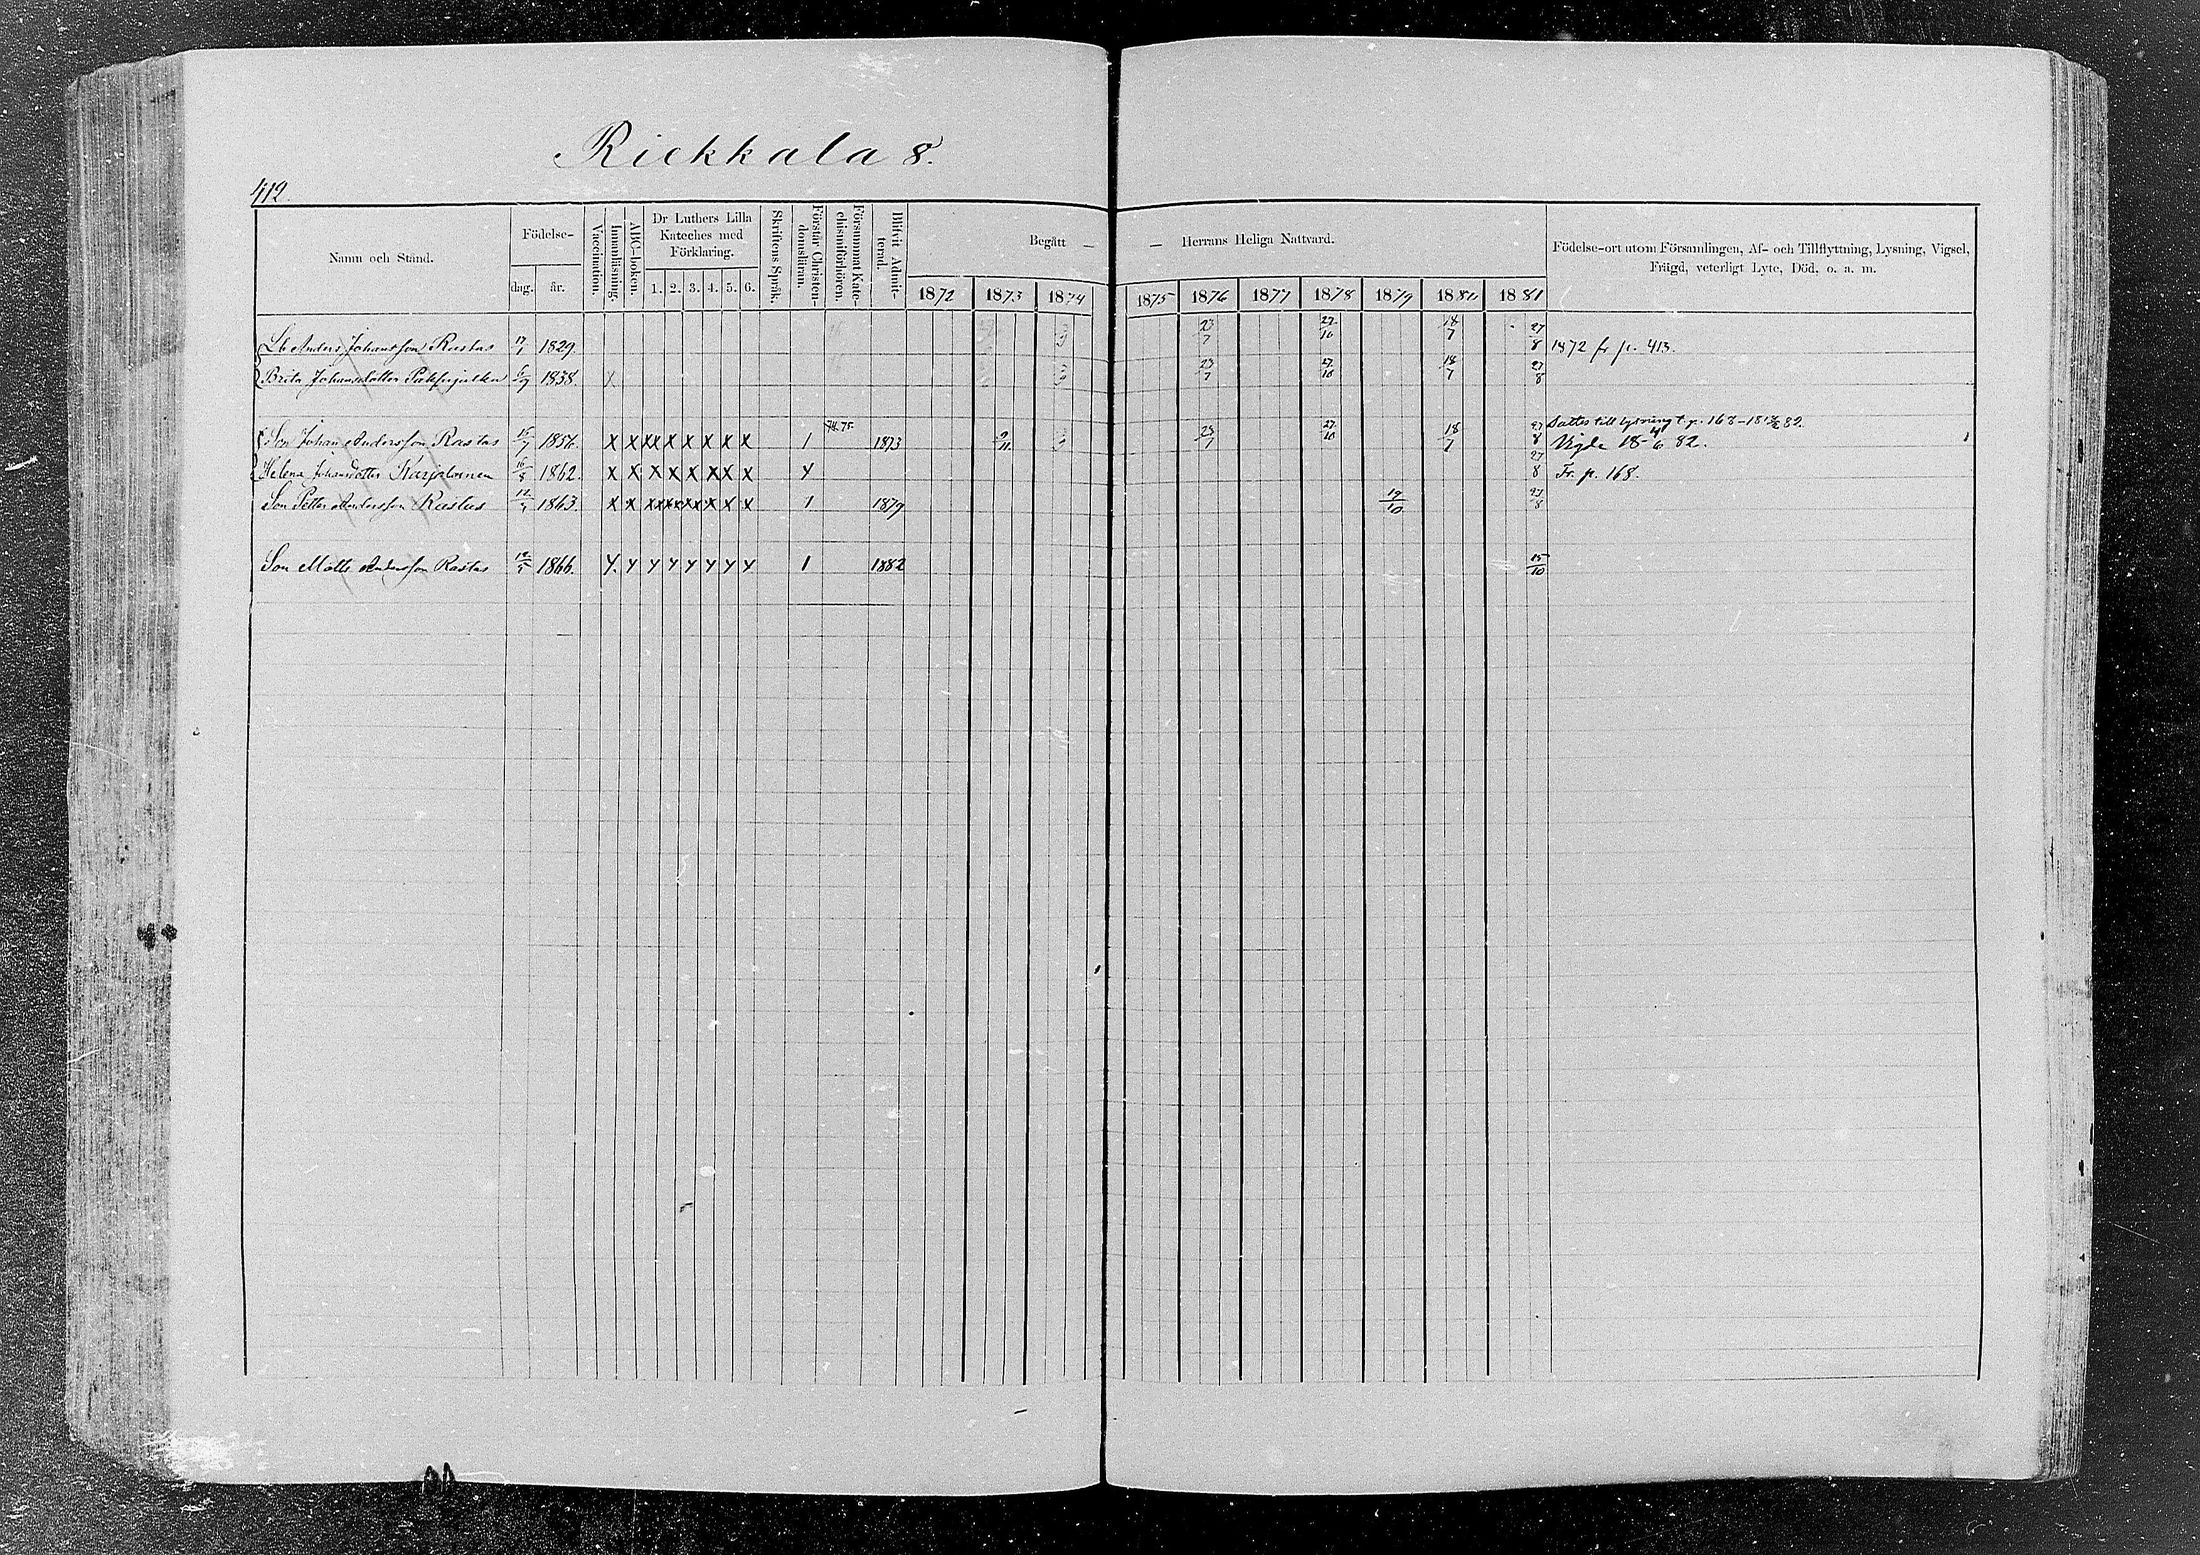 Riekkala 8.
412.
Namn och Stånd.
Födelse-
dag. år.
Vaccination.
Innanläsning.
ABC-boken.
Dr Luthers Lilla
Kateches med
Förklaring.
1. 2. 3. 4. 5. 6.
Skriftens Språk.
Förstår Christen-
domsläran.
Försummat Kate-
chismiförhören.
Blifvit Admit-
terad.
Begått —
— Herrans Heliga Nattvard.
1872 1873 1874 1875 1876 1877 1878 1879 1880 1881
Födelse-ort utom Församlingen, Af- och Tillflyttning, Lysning, Vigsel,
Frägd, veterligt Lyte, Död, o. a. m.
Anders Johansson Rastas 17/1 1829. 23/7 27/10 18/7 27/8 1872 fr p. 413.
Brita Johansdotter 6/9 1838. x 23/7 27/10 18/7 27/8
Son Johan Andersson Rastas 15/7 1856. x x xx x x x x x 1 74.75. 1873 9/11 23/7 27/10 18/7 27/8 Vigde 18 4/6 82.
Helena Johansdotter Karjalainen 1862. x x x x x xx x x 27/8 Fr. p. 168.
Son Petter Andersson Rastas 12/9 1863. 1 1879 19/10 27/8
Son Matts Andersson Rastas 1866. 1 1882 15/10